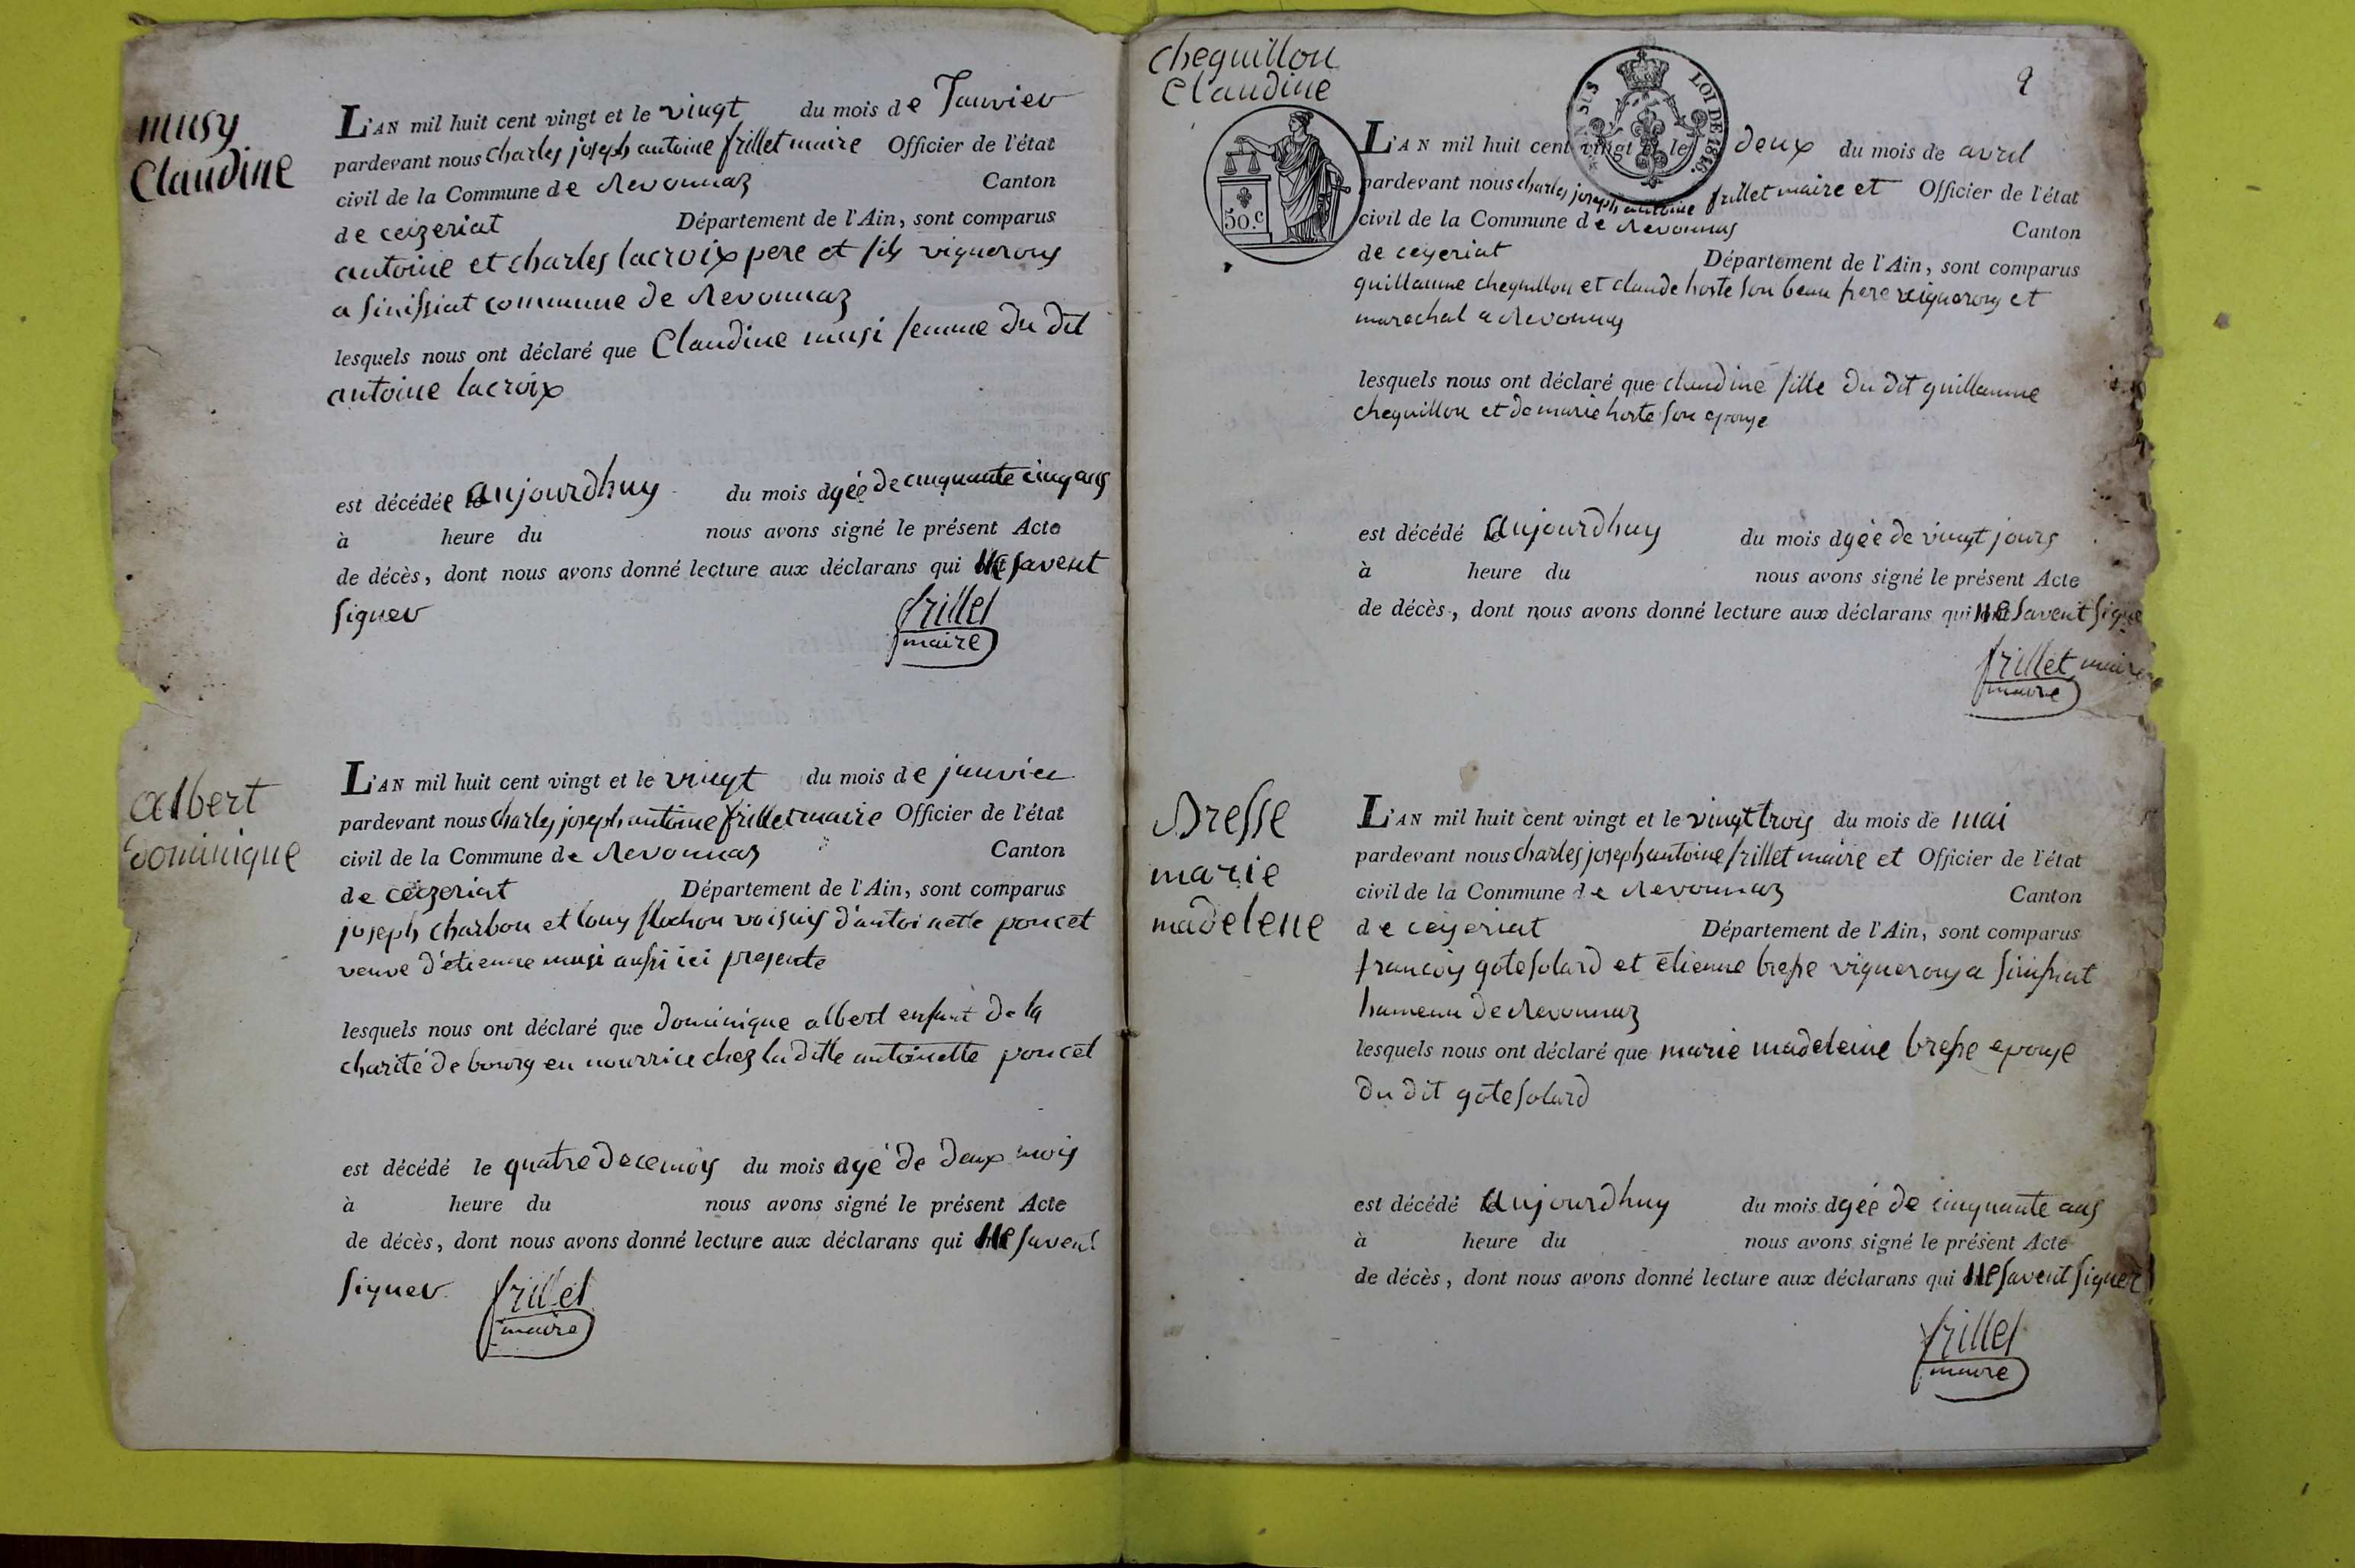 musy
Claudine
L'AN mil huit cent vingt et le vingt du mois de Janvier
pardevant nous charles joseph antoine frillet maire Officier de l'état
civil de la Commune de Revonnaz Canton
de ceizeriat Département de l'Ain, sont comparus
antoine et charles lacroix pere et fils vignerons
a sinissiat commune de Revonnaz
lesquels nous ont déclaré que Claudine musi femme du dit
antoine lacroix
est décédée aujourdhuy du mois agée de cinquante cinq ans
à heure du nous avons signé le présent Acte
de décès, dont nous avons donné lecture aux déclarans qui ne savent
signer frillet
maire
albert
dominique
L'AN mil huit cent vingt et le vingt du mois de janvier
pardevant nous charles joseph antoine frillet maire Officier de l'état
civil de la Commune de Revonnaz Canton
de ceizeriat Département de l'Ain, sont comparus
joseph charbon et louis flochon voisins d'antoinette poncet
veuve d'etienne musi aussi ici presente
lesquels nous ont déclaré que dominique albert enfant de la
charité de bourg en nourrice chez la ditte antoinette poncet
est décédé le quatre de ce mois du mois agé de deux mois
à heure du nous avons signé le présent Acte
de décès, dont nous avons donné lecture aux déclarans qui ne savent
signer frillet
maire
9
cheguillon
Claudine
50.c
LOI DE 1816.
L'AN mil huit cent vingt et le deux du mois de avril
pardevant nous charles joseph antoine frillet maire et Officier de l'état
civil de la Commune de Revonnas Canton
de ceyseriat Département de l'Ain, sont comparus
guillaume cheguillon et claude hoste son beau frere vignerons et
marechal a Revonnas
lesquels nous ont déclaré que claudine fille du dit guillaume
cheguillon et de marie hoste son epouse
est décédé aujourdhuy du mois agée de vingt jours
à heure du nous avons signé le présent Acte
de décès, dont nous avons donné lecture aux déclarans qui ne savent signe
frillet maire
maire
Bresse
marie
madelene
L'AN mil huit cent vingt et le vingt trois du mois de mai
pardevant nous charles joseph antoine frillet maire et Officier de l'état
civil de la Commune de Revonnaz Canton
de ceyseriat Département de l'Ain, sont comparus
francois gotesolard et étienne bresse vignerons a sinissiat
hameau de Revonnaz
lesquels nous ont déclaré que marie madeleine bresse epouse
du dit gotesolard
est décédé aujourdhuy du mois agée de cinquante ans
à heure du nous avons signé le présent Acte
de décès, dont nous avons donné lecture aux déclarans qui ne savent signer
frillet
maire